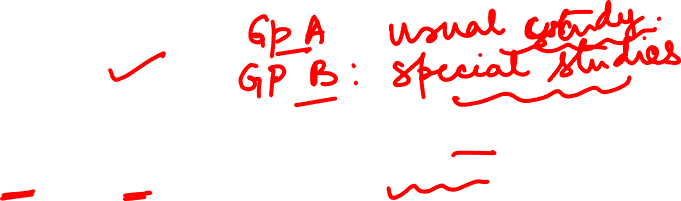 Gp A usual study.
GP B: special studies